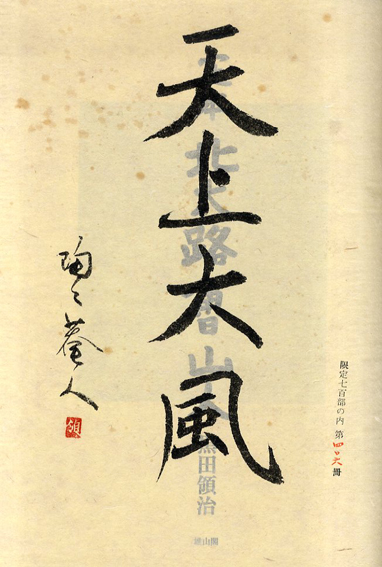 限定七百部の内 第四〇六冊
天上大風
北大路魯山人
黒田領治
陶々菴人
領